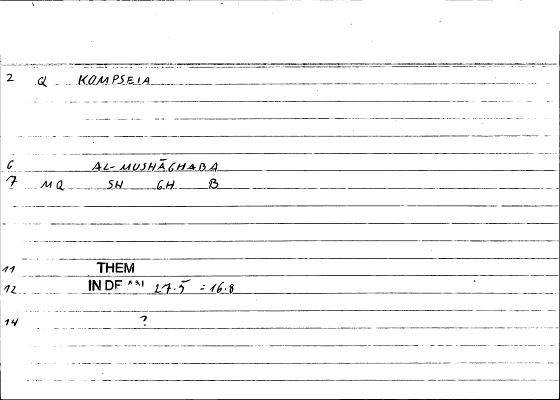 2 Q KOMPSEIA
6 AL-MUSHĀGHABA
7 MQ SH GH B
11 THEM
12 IN DF 27.5 = 16.8
14 ?